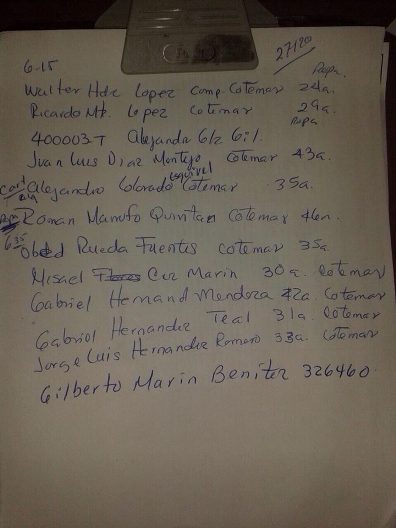 27120
6-15
Ropa.
Walter Hdz Lopez comp. Cotemar 24a.
Ricardo Mtz Lopez Cotemar 29a.
Ropa
400003-T Alejandr Glz Gil.
Juan Luis Diaz Montejo Cotemar 43a.
Esquivel
Cart Alejandro Colorado Cotemar 35a.
Roman Manufo Quintan Cotemar 46a.
6 35
Obed Rueda Fuentes cotemar 35a
Misael Cruz Marin 30a. Cotemar
Gabriel Hernand Mendoza 42a. Cotemar
Gabriel Hernandez Teal 31a. Cotemar
Jorge Luis Hernandez Romero 33a. Cotemar
Gilberto Marin Benitez 326460.